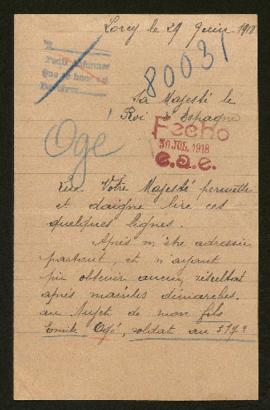 Lorcy le 29 Juin 1918
80031
Sa Majesté le
Roi d'Espagne
Fecho
30 JUL. 1918
e.a.e.
Ogé
Que Votre Majesté permette
et daigne lire ces
quelques lignes.
Après m'être adressée
partout, et n'ayant
pu obtenir aucun résultat
après maintes démarches.
au Sujet de mon fils
Emile Ogé, soldat au